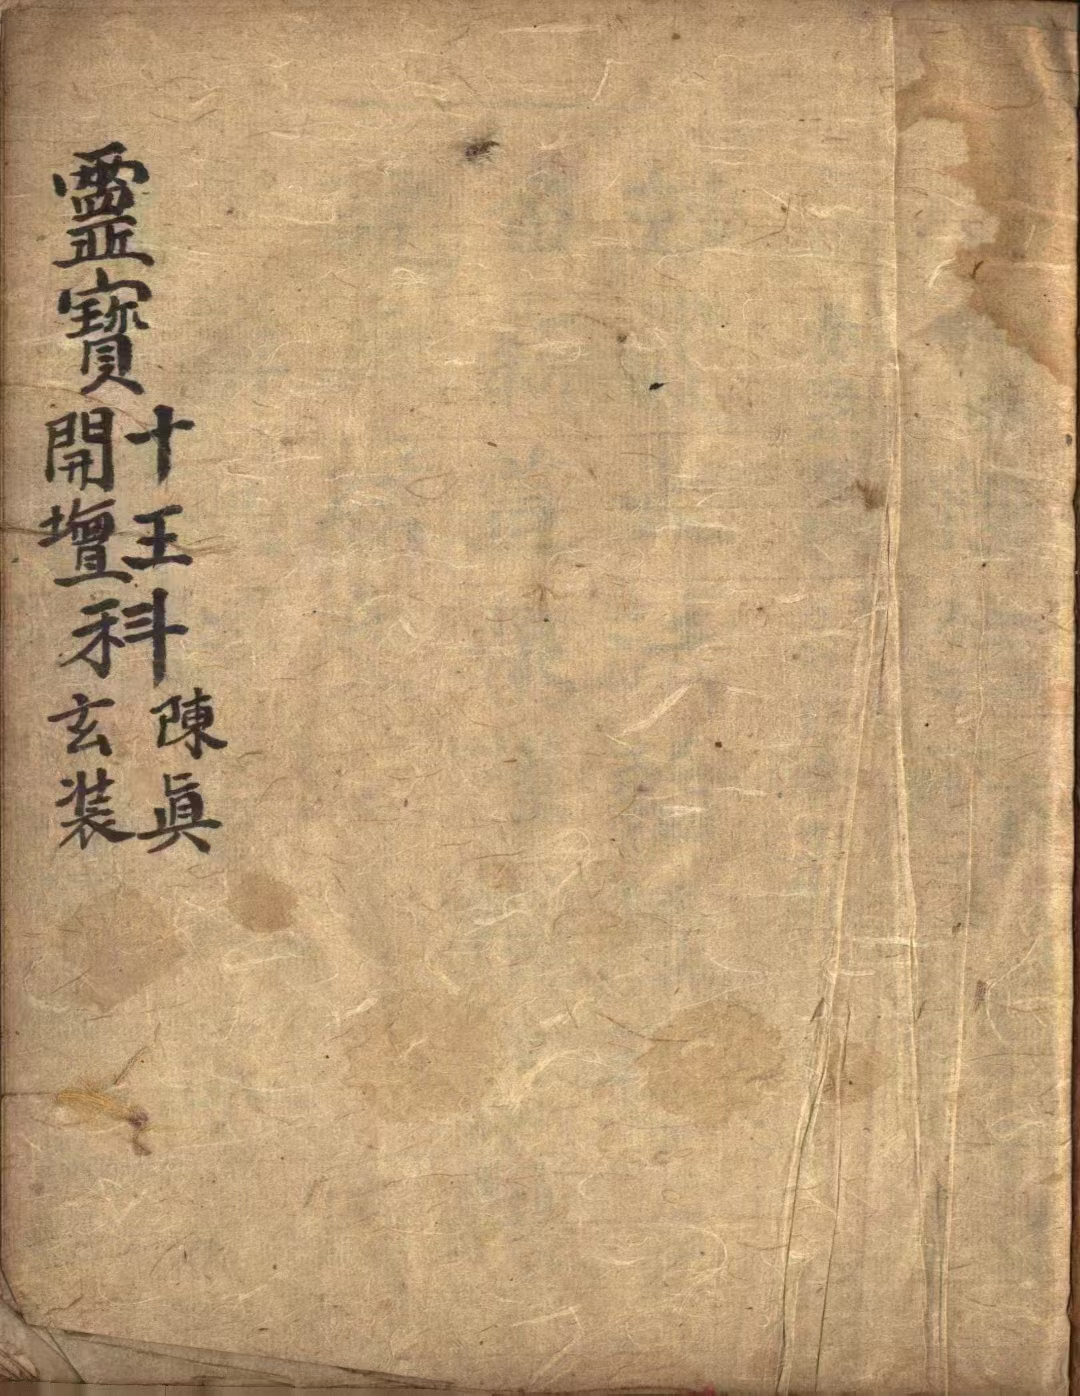 靈寶
十王科 陳眞
開壇科 玄装